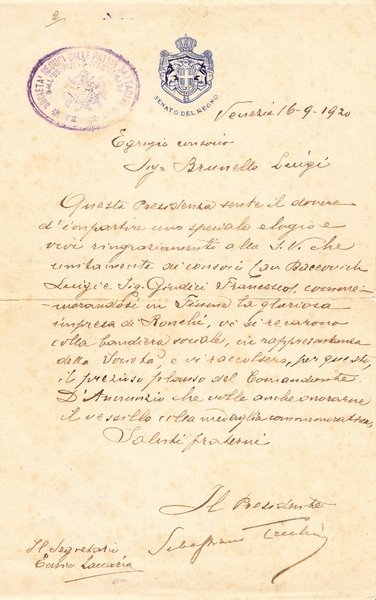 2
SOCIETÀ REDUCI DALLE PATRIE BATTAGLIE
SENATO DEL REGNO
Venezia 16-9-1920
Egregio consocio
Sigr Brunello Luigi
Questa Presidenza sente il dovere
d'impartire uno speciale elogio e
vivi ringraziamenti alla S.V. che
unitamente ai consoci Cav Baccovich
Luigi e Sig. Giudici Francesco, comme-
morandosi in Fiume la gloriosa
impresa di Ronchi, vi si recarono
colla bandiera sociale, in rappresentanza
della Società e vi raccolsero, per questo,
il prezioso plauso del Comandante
D'Annunzio che volle anche onorarne
il vessillo colla medaglia commemorativa.
Saluti fraterni
Il Presidente
Sebastiano
Il Segretario